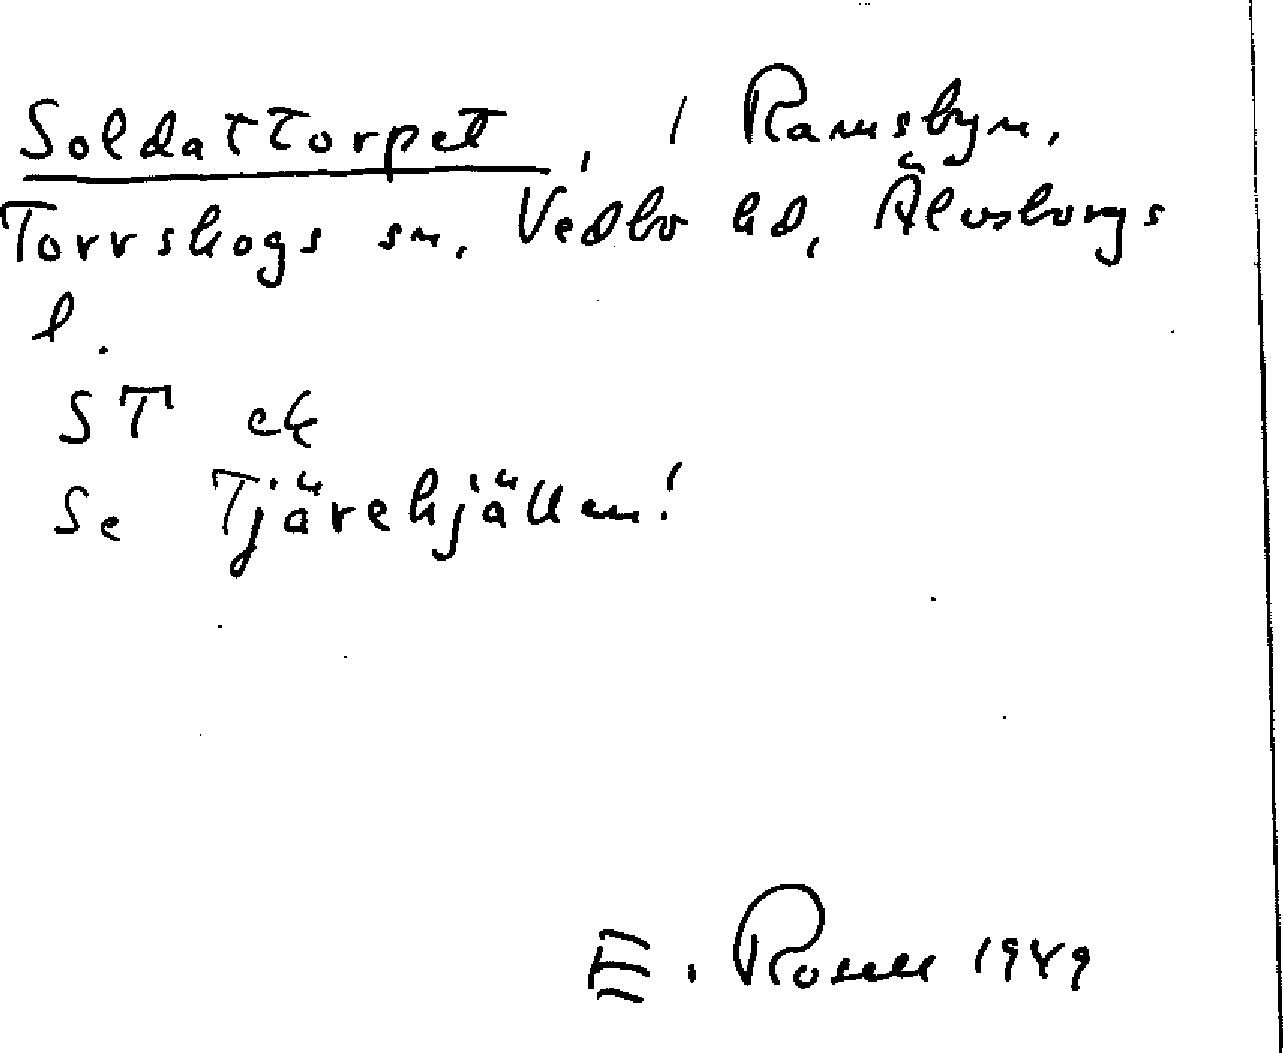 Soldattorpet, / Ramsbyn,
Torrskogs sn, Vedbo hd, Älvsborgs
l.
ST ek
Se Tjärekjällen!
E. Rosell 1949